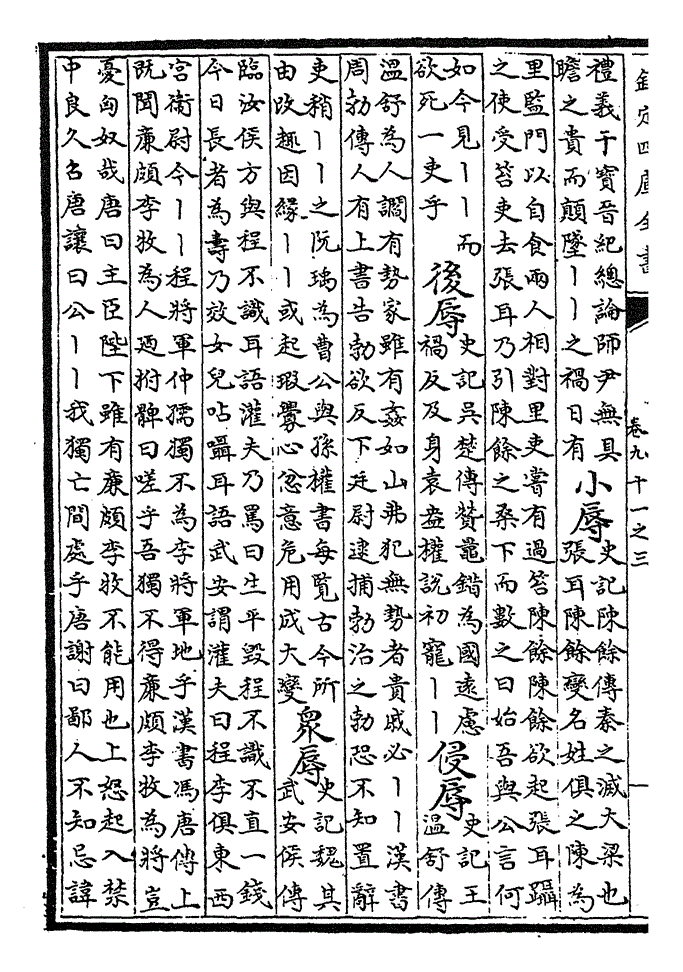 欽定四庫全書
卷九十一之三
禮義干寶晉紀總論師尹無具
瞻之貴而顛墜丨丨之禍日有
小辱
史記陳餘傳秦之滅大梁也
張耳陳餘變名姓俱之陳為
里監門以自食兩人相對里吏嘗有過笞陳餘陳餘欲起張耳躡
之使受笞吏去張耳乃引陳餘之桑下而數之曰始吾與公言何
如今見丨丨而
欲死一吏乎
後辱
史記吳楚傳贊鼂錯為國遠慮
禍反及身袁盎權說初寵丨丨
侵辱
史記王
溫舒傳
溫舒為人讇有勢家雖有姦如山弗犯無勢者貴戚必丨丨漢書
周勃傳人有上書告勃欲反下廷尉逮捕勃治之勃恐不知置辭
吏稍丨丨之阮瑀為曹公與孫權書每覽古今所
由改趣因緣丨丨或起瑕釁心忿意危用成大變
眾辱
史記魏其
武安侯傳
臨汝侯方與程不識耳語灌夫乃罵曰生平毀程不識不直一錢
今日長者為壽乃效女兒呫囁耳語武安謂灌夫曰程李俱東西
宮衛尉今丨丨程將軍仲孺獨不為李將軍地乎漢書馮唐傳上
既聞廉頗李牧為人廼拊髀曰嗟乎吾獨不得廉頗李牧為將豈
憂匈奴哉唐曰主臣陛下雖有廉頗李牧不能用也上怒起入禁
中良久召唐讓曰公丨丨我獨亡間處乎唐謝曰鄙人不知忌諱